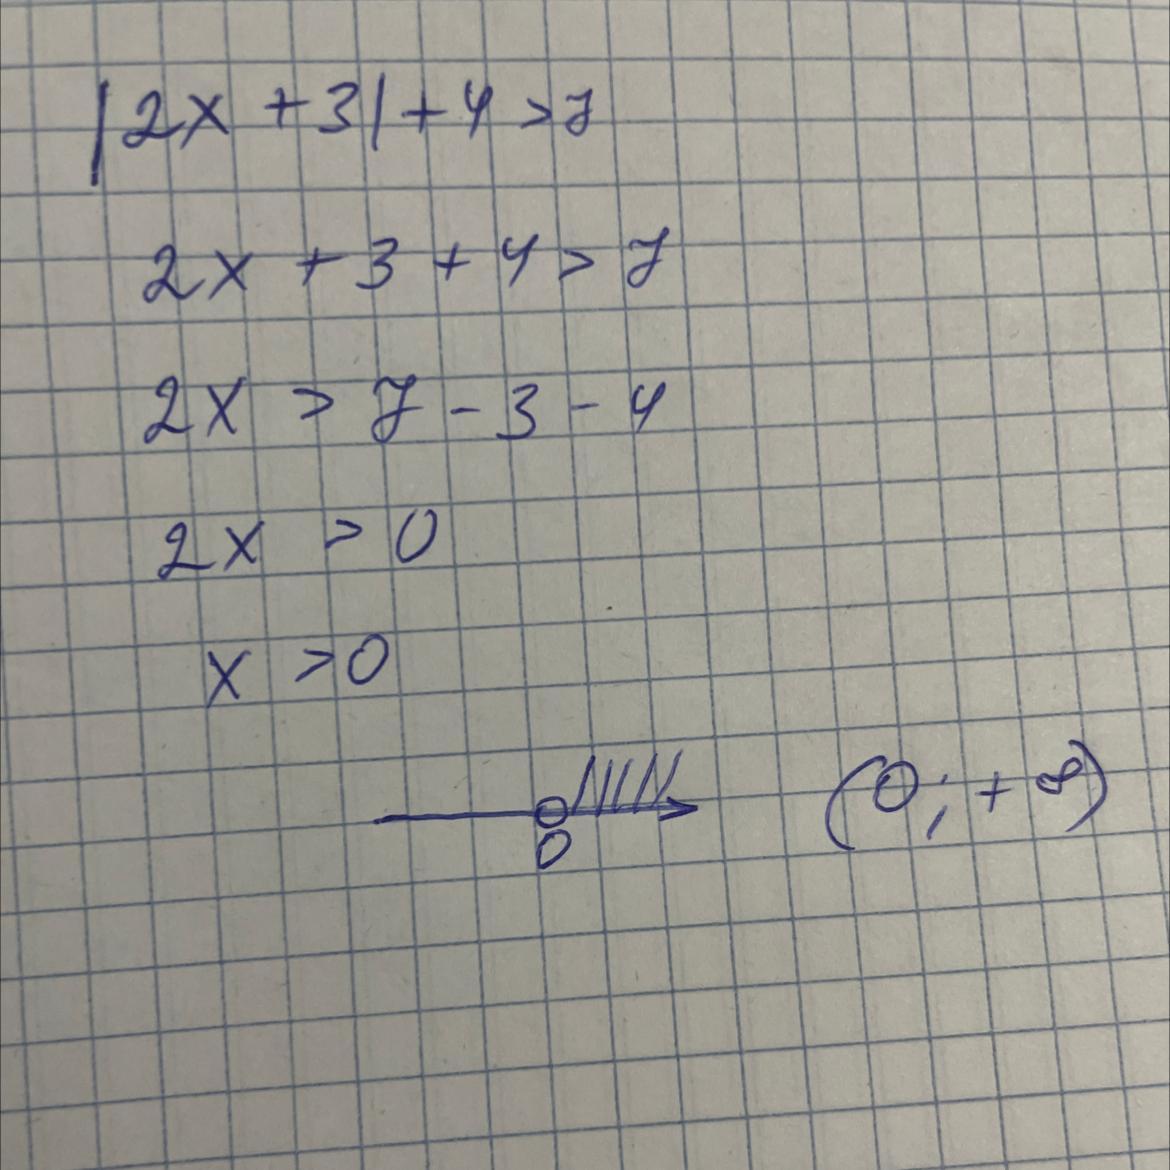 |2x + 3| + 4 > 7
2x + 3 + 4 > 7
2x > 7 - 3 - 4
2x > 0
x > 0
0 (0; + ∞)